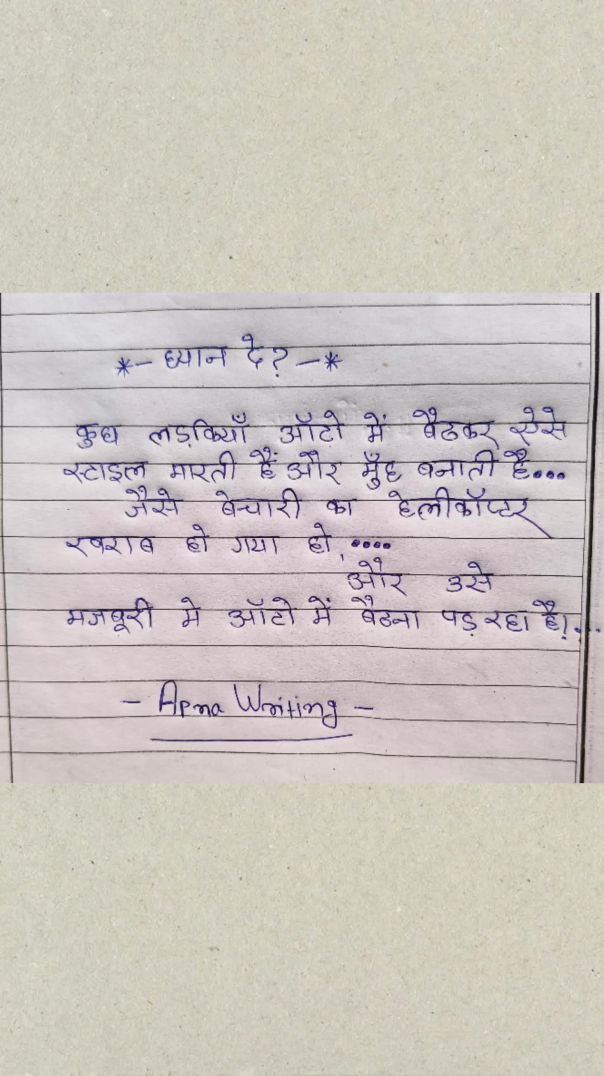 *— ध्यान दे? —*
कुछ लड़कियाँ ऑटो में बैठकर ऐसे
स्टाइल मारती हैं और मुँह बनाती है...
जैसे बेचारी का हेलीकॉप्टर
खराब हो गया हो,....
और उसे
मजबूरी मे ऑटो में बैठना पड़ रहा है!...
- Apna Writing -